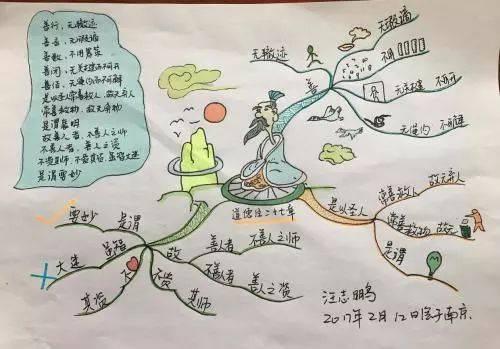 善行,无辙迹
善言,无瑕谪
善数,不用筹策
善闭,无关楗而不可开
无绳约而不可解
是以圣人常善救人,故无弃人
常善救物,故无弃物
是谓袭明
故善人者,不善人之师
不善人者,善人之资
不贵其师,不爱其资,虽智大迷
是谓要妙
道德经二十七章
善
无辙迹
无瑕谪
不用
无关楗 不可开
无绳约
是以圣人
常善救人 故无弃人
常善救物 故无
是谓
故
善者 不善人之师
不善者 善人之资
不
不贵 其师
其资
虽智
大迷
是谓
要妙
汪志鹏
2017年2月12日于南京